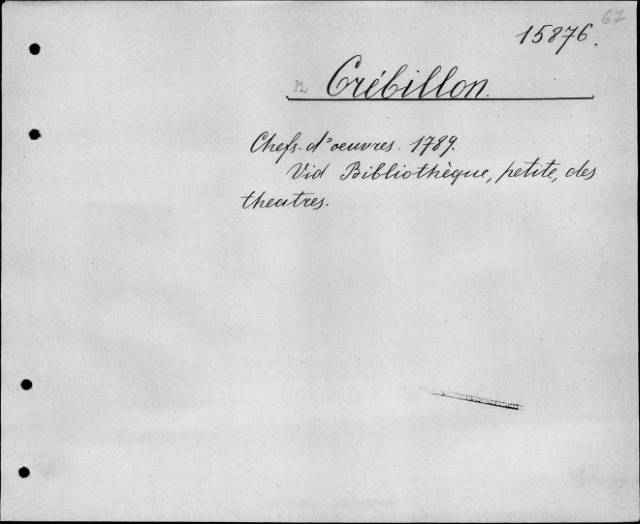 67
15876.
32 Crébillon.
Chefs-d'oeuvres. 1789.
Vid Bibliothèque, petite, des
theatres.